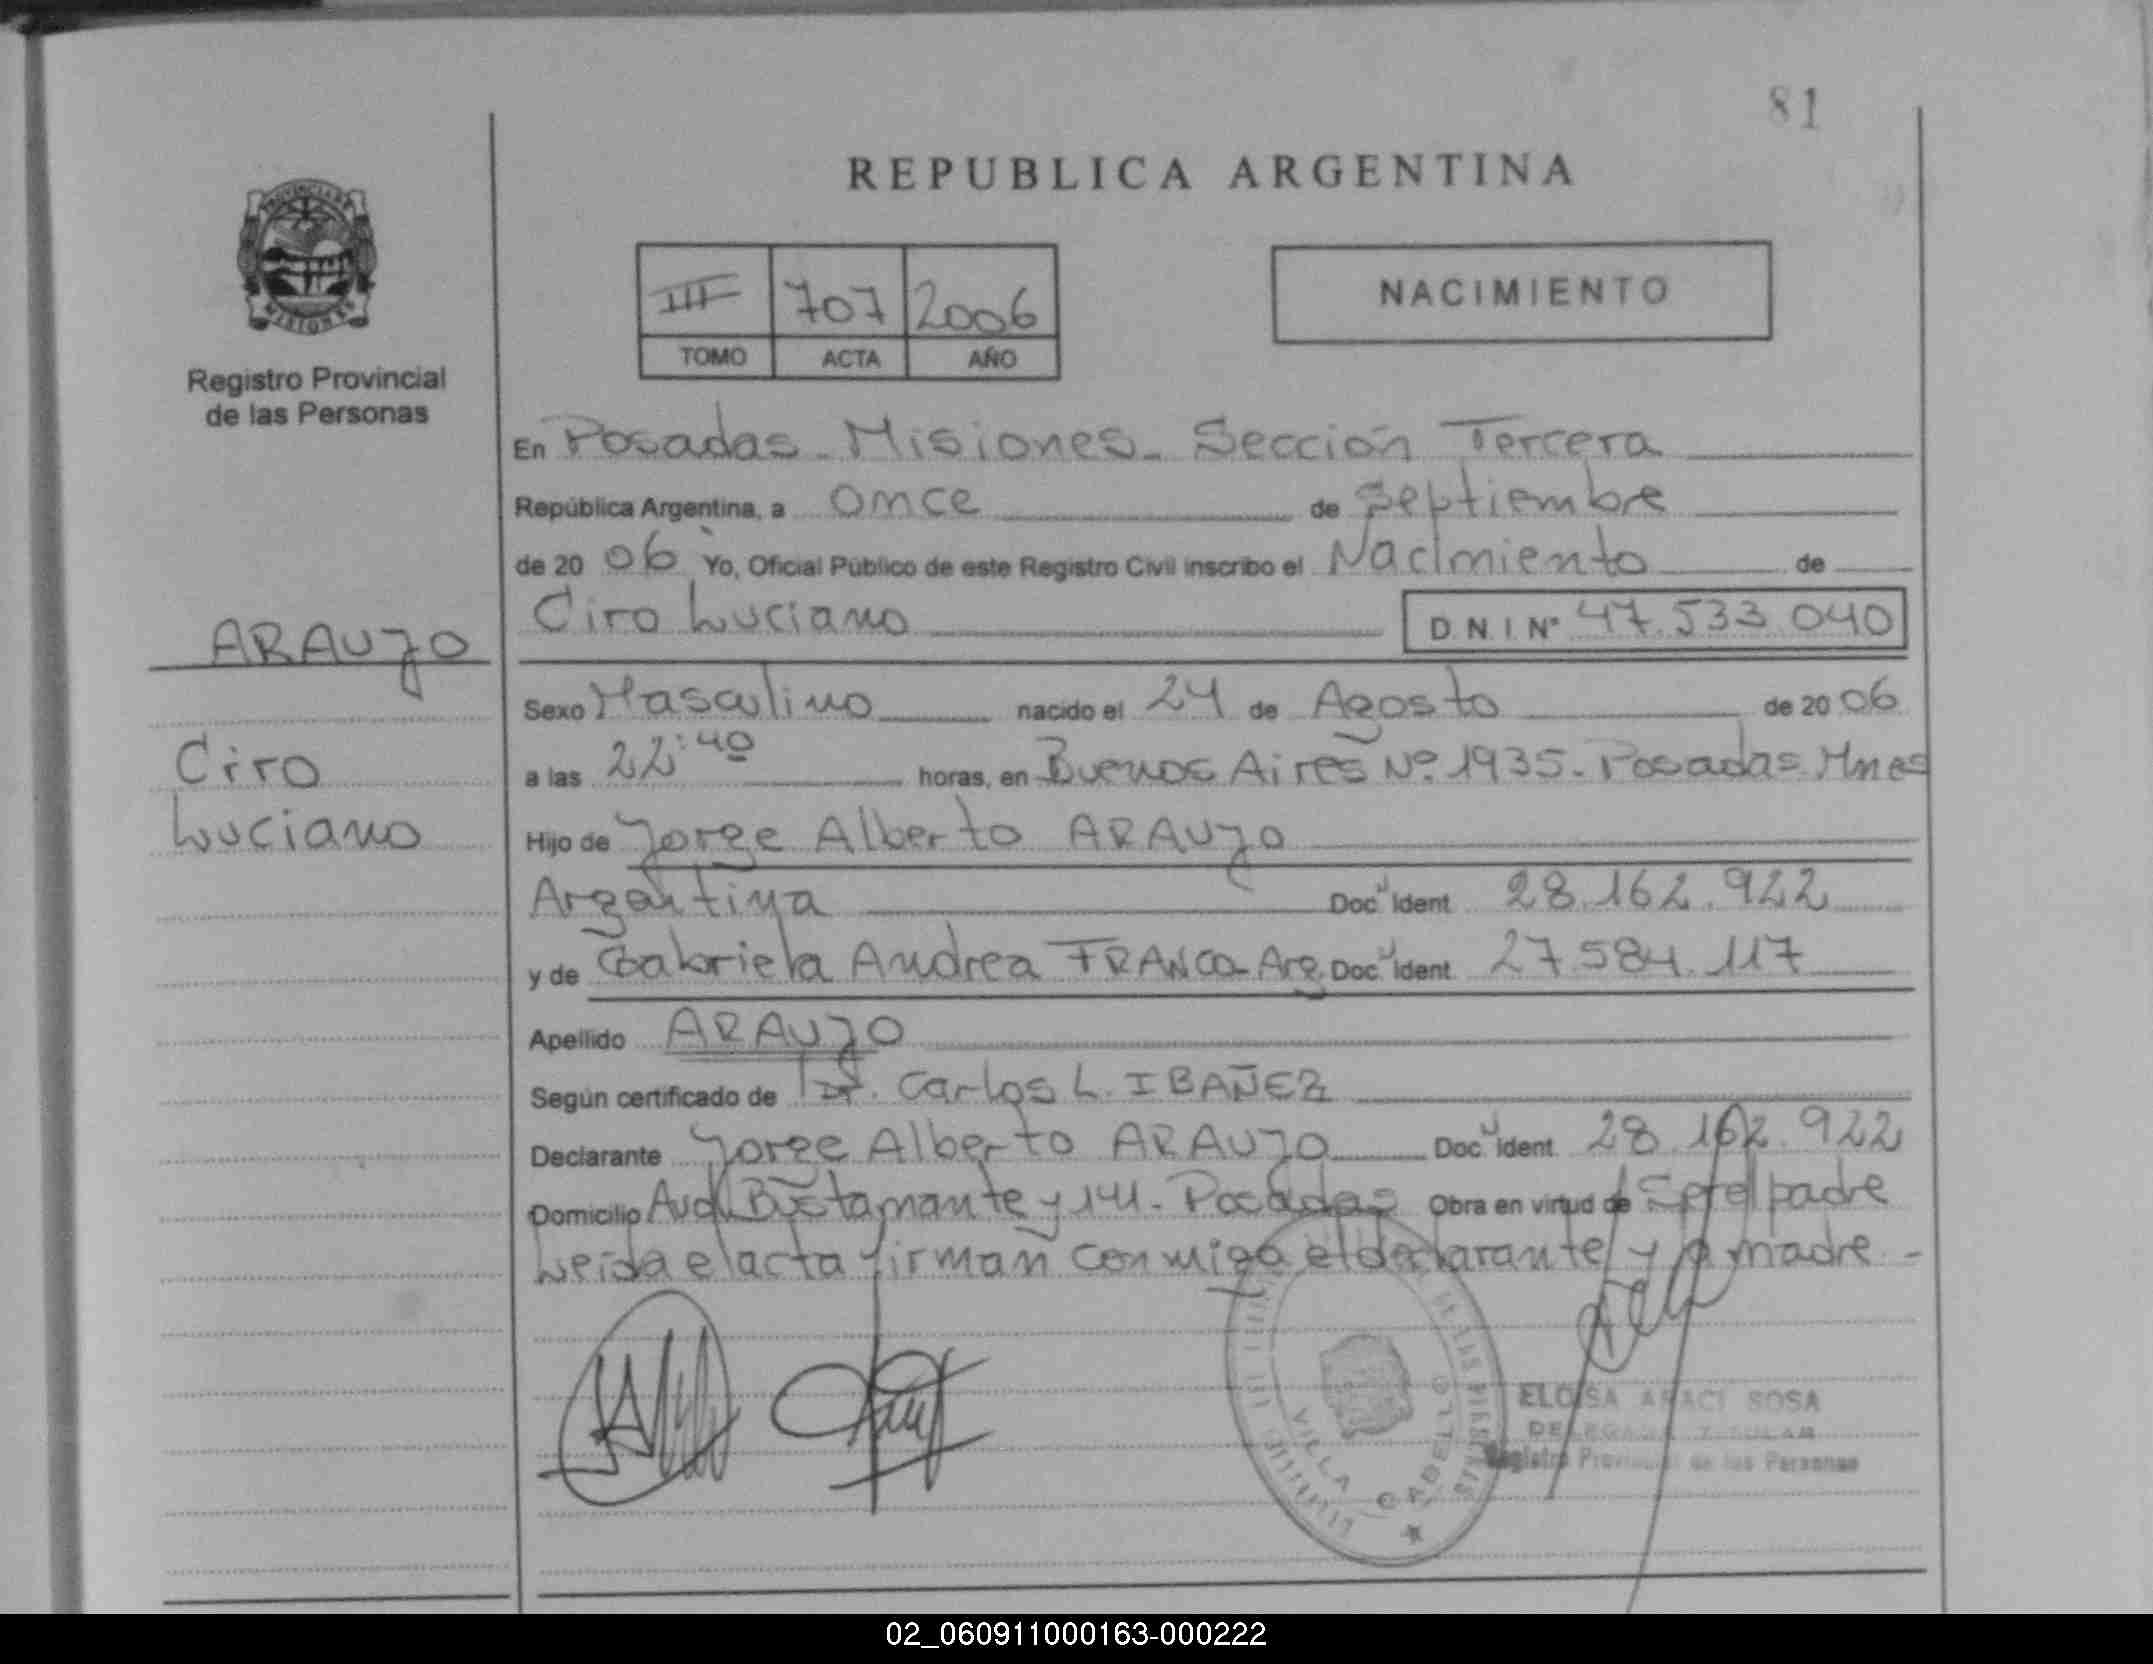 81
REPUBLICA ARGENTINA
PROVINCIA DE
MISIONES
Registro Provincial
de las Personas
III 707 2006
TOMO ACTA AÑO
NACIMIENTO
En Posadas - Misiones - Sección Tercera
República Argentina, a once de Septiembre
de 20 06 Yo, Oficial Público de este Registro Civil inscribo el Nacimiento de
Ciro Luciano D N I Nº 47.533.040
ARAUJO
Ciro
Luciano
Sexo Masculino nacido el 24 de Agosto de 20 06
a las 22:40 horas, en Buenos Aires Nº 1935 - Posadas Mnes
Hijo de Jorge Alberto ARAUJO
Argentina Doc Ident 28.162.922
y de Gabriela Andrea FRANCO - Arg. Doc Ident 27.584.117
Apellido ARAUJO
Según certificado de Dr. Carlos L. IBAÑEZ
Declarante Jorge Alberto ARAUJO Doc Ident 28.162.922
Domicilio Avd. Bustamante y 141 - Posadas Obra en virtud de Ser el padre
Leida el acta firman conmigo el declarante y la madre -
VILLA CABELLO
ELOISA ARACI SOSA
DELEGADA TITULAR
Registro Provincial de las Personas
02_060911000163-000222